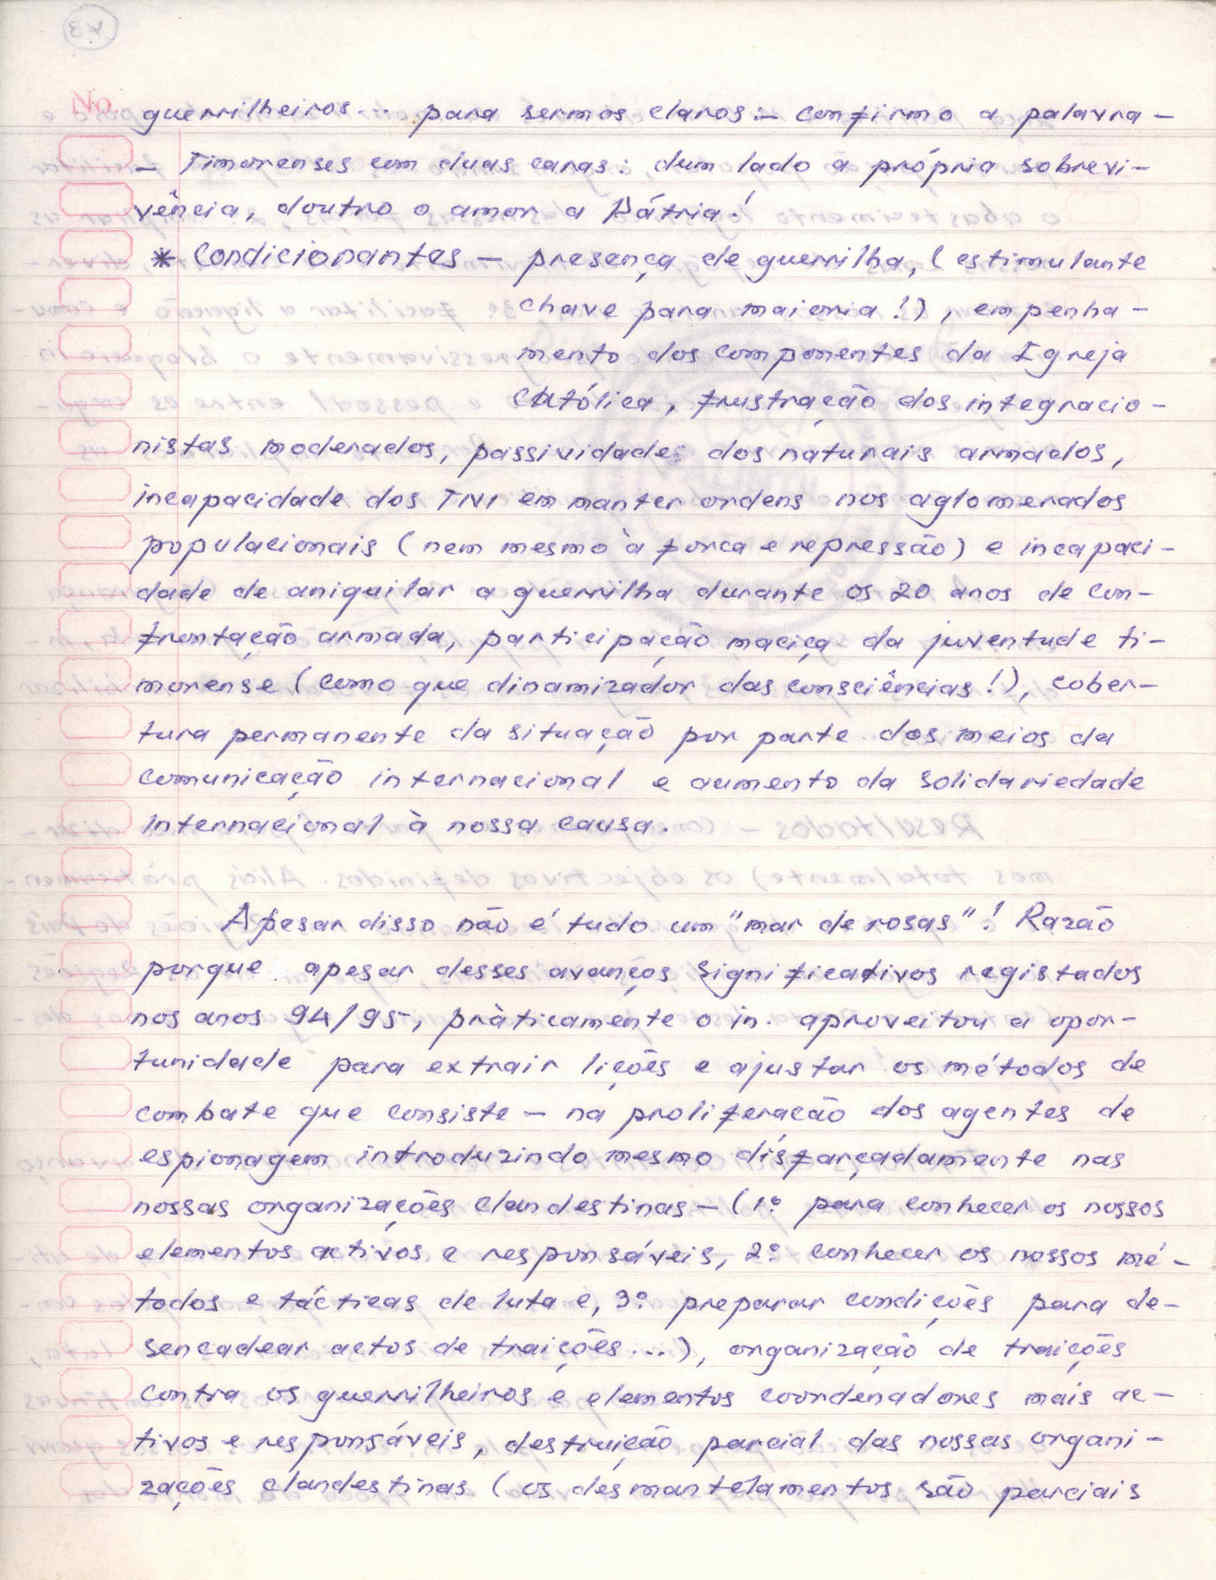 No.
guerrilheiros... para sermos claros:- confirmo a palavra -
- Timorenses com duas caras: dum lado a própria sobrevi-
vência, doutro o amor a Pátria!
* Condicionantes - presença de guerrilha, (estimulante
chave para maioria!), empenha-
mento dos componentes da Igreja
Católica, frustração dos integracio-
nistas moderados, passividade dos naturais armados,
incapacidade dos TNI em manter ordens nos aglomerados
populacionais (nem mesmo à força e repressão) e incapaci-
dade de aniquilar a guerrilha durante os 20 anos de con-
frontação armada, participação maciça da juventude ti-
morense (como que dinamizador das consciências!), cober-
tura permanente da situação por parte dos meios da
comunicação internacional e aumento da solidariedade
Internacional à nossa causa.
Apesar disso não é tudo um "mar de rosas"! Razão
porque apesar desses avanços significativos registados
nos anos 94/95, pràticamente o in. aproveitou a opor-
tunidade para extrair lições e ajustar os métodos de
combate que consiste - na proliferação dos agentes de
espionagem introduzindo mesmo disfarçadamente nas
nossas organizações clandestinas - (1º para conhecer os nossos
elementos activos e responsáveis, 2º conhecer os nossos mé-
todos e tácticas de luta e, 3º preparar condições para de-
sencadear actos de traições...), organização de traições
contra os guerrilheiros e elementos coordenadores mais ac-
tivos e responsáveis, destruição parcial das nossas organi-
zações clandestinas (os desmantelamentos são parciais